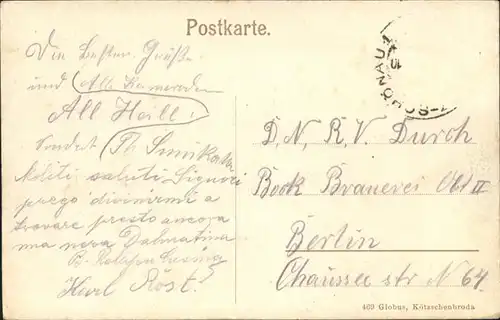 Postkarte.
Die besten Grüße
und All Kameraden
All Heil!
sendet Th.
saluti Signori
prego divinirmi a
trovare presto ancora
una nera Dalmatina
Karl Röst.
SCHÖNAU
D. N. R. V. Durch
Book Brauerei Abt II
Berlin
Chaussee str N 64.
469 Globus, Kötzschenbroda